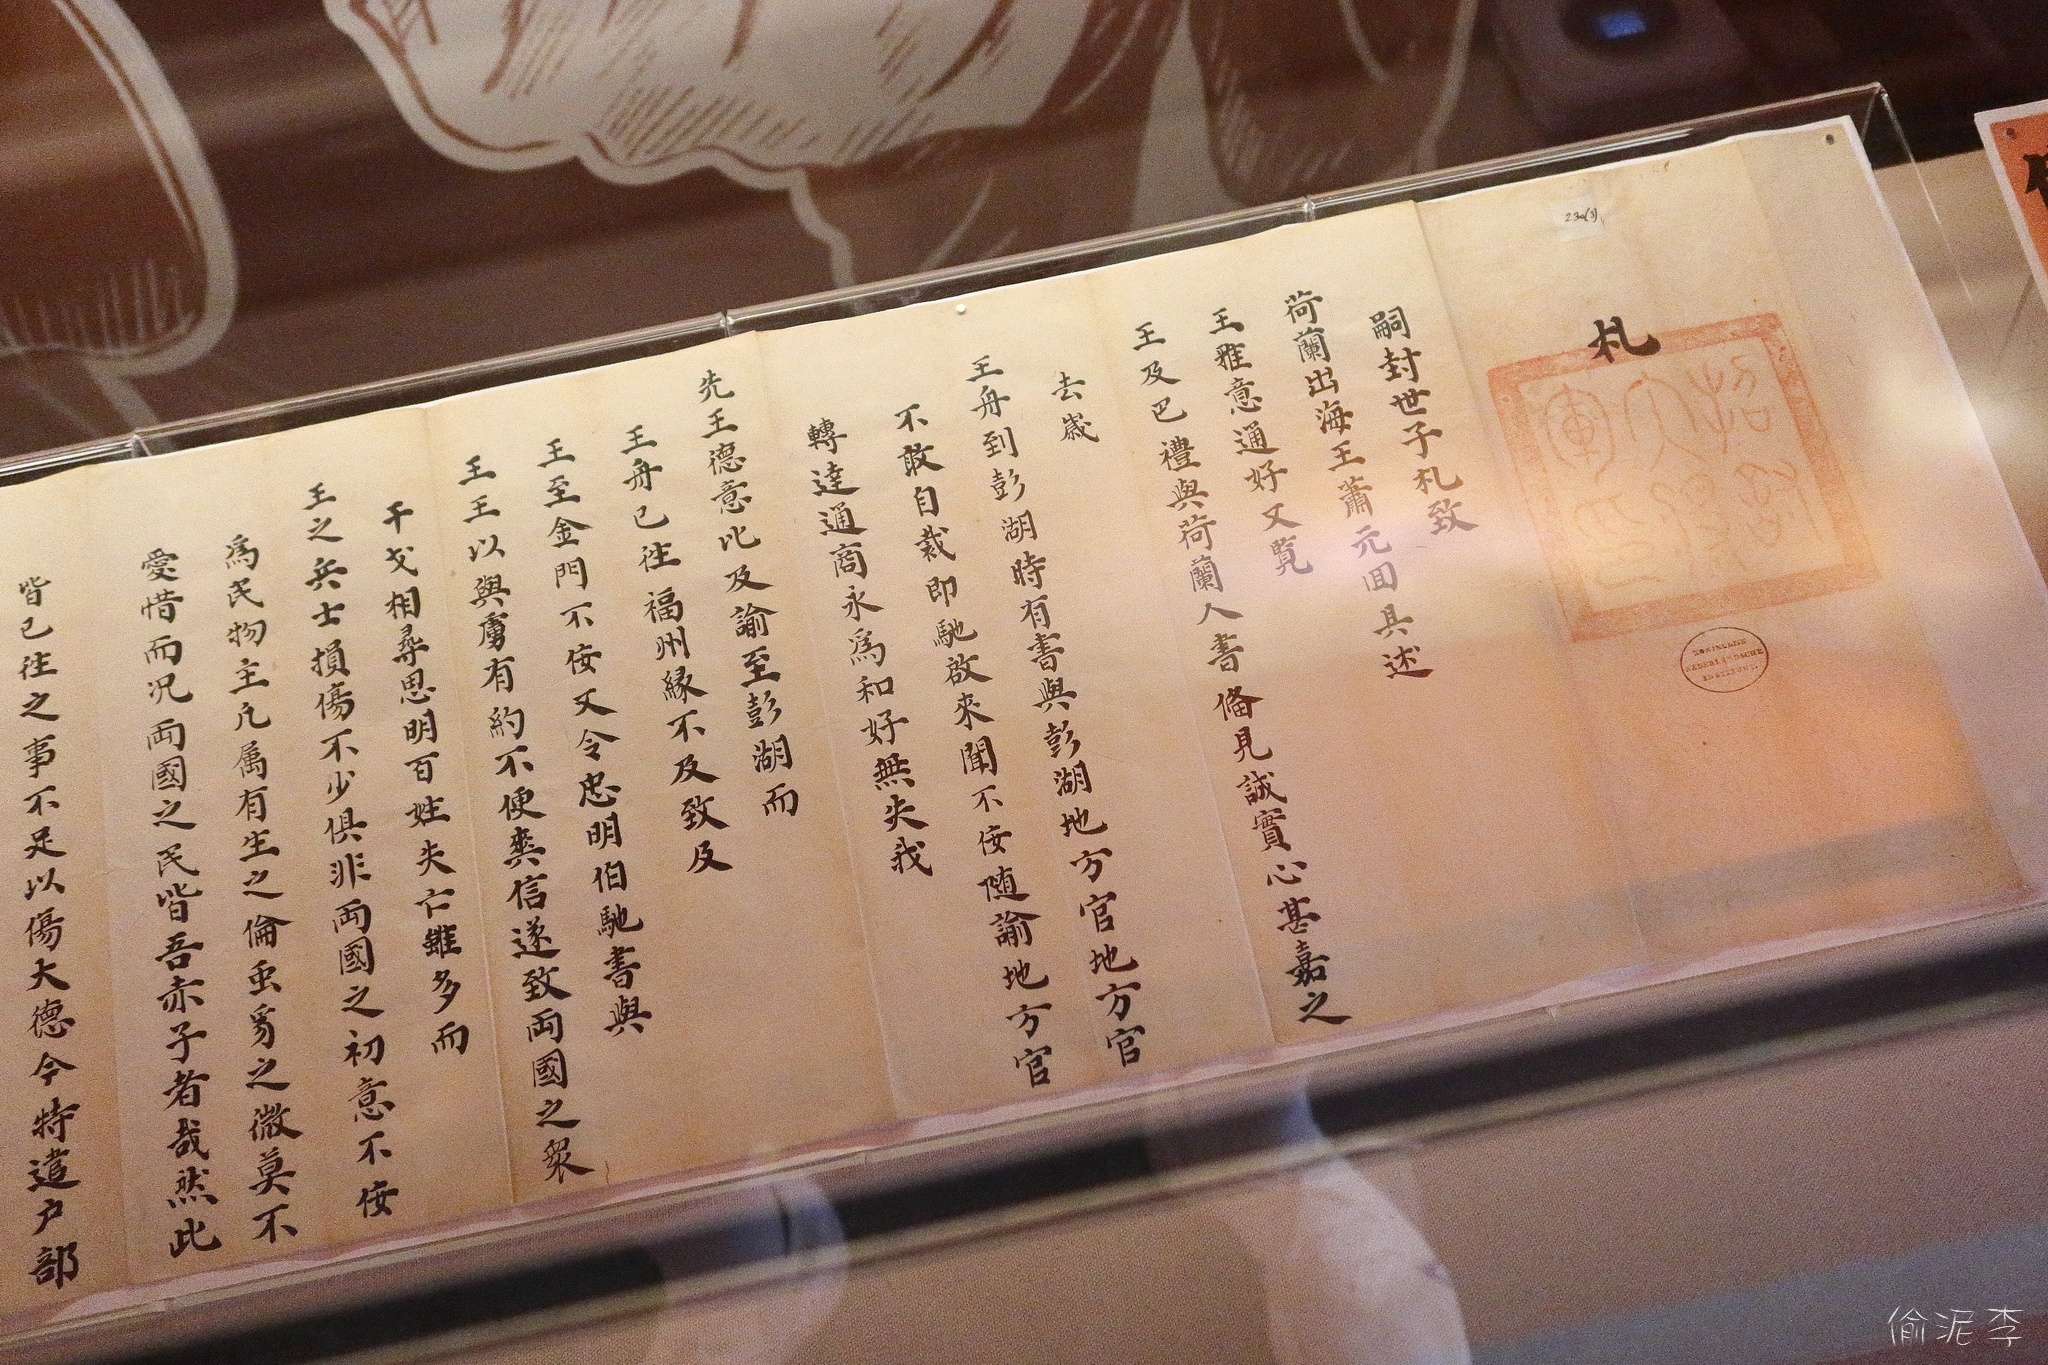 札
嗣封世子札致
荷蘭出海王蕭元回具述
王雅意通好又覧
王及巴禮與荷蘭人書俻見誠實心甚嘉之
去歲
王舟到彭湖時有書與彭湖地方官地方官
不敢自裁即馳啟來聞不佞随諭地方官
轉達通商永為和好無失我
先王德意比及諭至彭湖而
王舟已徃福州緣不及致及
王至金門不佞又令忠明伯馳書與
王王以與虜有約不便爽信遂致両國之衆
干戈相尋思明百姓失亡雖多而
王之兵士損傷不少俱非両國之初意不佞
為民物主凡属有生之倫虫豸之微莫不
愛惜而况両國之民皆吾赤子者哉然此
皆已徃之事不足以傷大德今特遣户部
KONINKLIJKE
NEDERLANDSCHE
INSTITUUT.
偷泥李